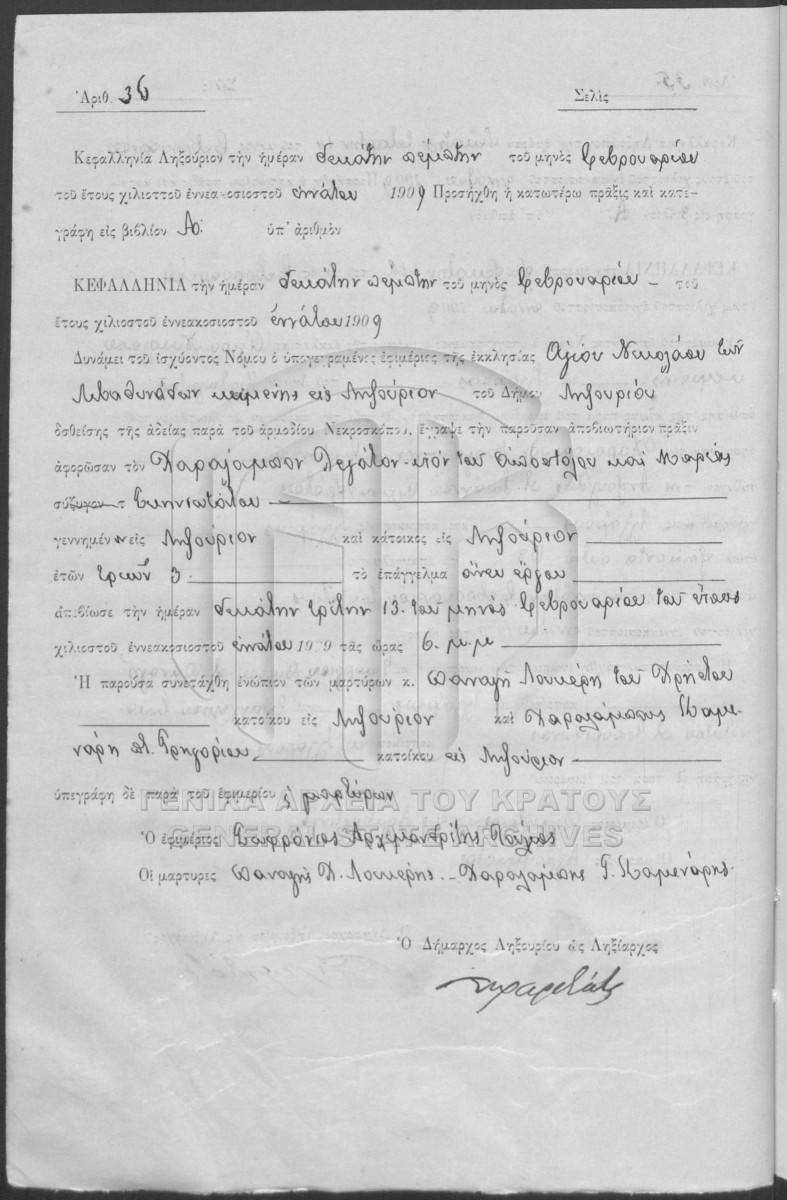 Ἀριθ. 36 Σελὶς
Κεφαλληνία Ληξούριον τὴν ἡμέραν δεκάτην πέμπτην τοῦ μηνὸς Φεβρουαρίου
τοῦ ἔτους χιλιοττοῦ ἐννεακοσιοστοῦ ἐννάτου 1909 Προσήχθη ἡ κατωτέρω πρᾶξις καὶ κατε-
γράφη εἰς βιβλίον Α. ὑπ' ἀριθμὸν
ΚΕΦΑΛΛΗΝΙΑ τὴν ἡμέραν δεκάτην πέμπτην τοῦ μηνὸς Φεβρουαρίου τοῦ
ἔτους χιλιοστοῦ ἐννεακοσιοστοῦ ἐννάτου 1909
Δυνάμει τοῦ ἰσχύοντος Νόμου ὁ ὑπογεγραμένος ἐφημέριος τῆς ἐκκλησίας Ἁγίου Νικολάου τῶν
κειμένης εἰς Ληξούριον τοῦ Δήμου Ληξουρίου
δοθείσης τῆς ἀδείας παρὰ τοῦ ἁρμοδίου Νεκροσκόπου, ἔγραψε τὴν παροῦσαν ἀποβιωτήριον πρᾶξιν
ἀφορῶσαν τὸν Χαράλαμπον υἱὸν τοῦ Ἀποστόλου καὶ Μαρίας
σύζυγον τ
γεννημένον εἰς Ληξούριον καὶ κάτοικος εἰς Ληξούριον
ἐτῶν τριῶν 3 τὸ ἐπάγγελμα ἄνευ ἔργου
ἀπεβίωσε τὴν ἡμέραν δεκάτην τρίτην 13. τοῦ μηνὸς Φεβρουαρίου τοῦ ἔτους
χιλιοστοῦ ἐννεακοσιοστοῦ ἐννάτου 1909 τὰς ὥρας 6. μ.μ
Ἡ παροῦσα συνετάχθη ἐνώπιον τῶν μαρτύρων κ. Παναγῆ Λουκέρη τοῦ Χρήστου
κατοίκου εἰς Ληξούριον καὶ Χαραλάμπους Καμε-
νάρη Γρηγορίου κατοίκου εἰς Ληξούριον
ὑπεγράφη δὲ παρὰ τοῦ ἐφημερίου μαρτύρων
ΓΕΝΙΚΑ ΑΡΧΕΙΑ ΤΟΥ ΚΡΑΤΟΥΣ
GENERAL STATE ARCHIVES
Ὁ ἐφημέριος Σωφρόνιος Ἀρχιμανδρίτης
Οἱ μάρτυρες Παναγῆς Χ. Λουκέρης - Χαραλάμπης Γ. Καμενάρης
Ὁ Δήμαρχος Ληξουρίου ὡς Ληξίαρχος